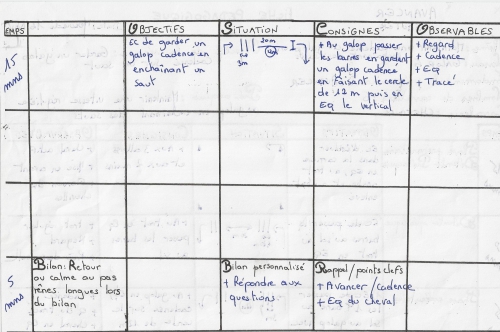 EMPS OBJECTIFS SITUATION CONSIGNES OBSERVABLES
15 mns
EC de garder un
galop cadencé en
enchaînant un
saut
20m
3m
+ Au galop passer
les barres en gardant
un galop cadencé
en faisant le cercle
de 12 m puis en
EQ le vertical
+ Regard
+ Cadence
+ EQ
+ Tracé
5 mns
Bilan: Retour
au calme au pas
rênes longues lors
du bilan.
Bilan personnalisé
+ Répondre aux
questions.
Rappel/points clefs
+ Avancer/cadence
+ EQ du cheval